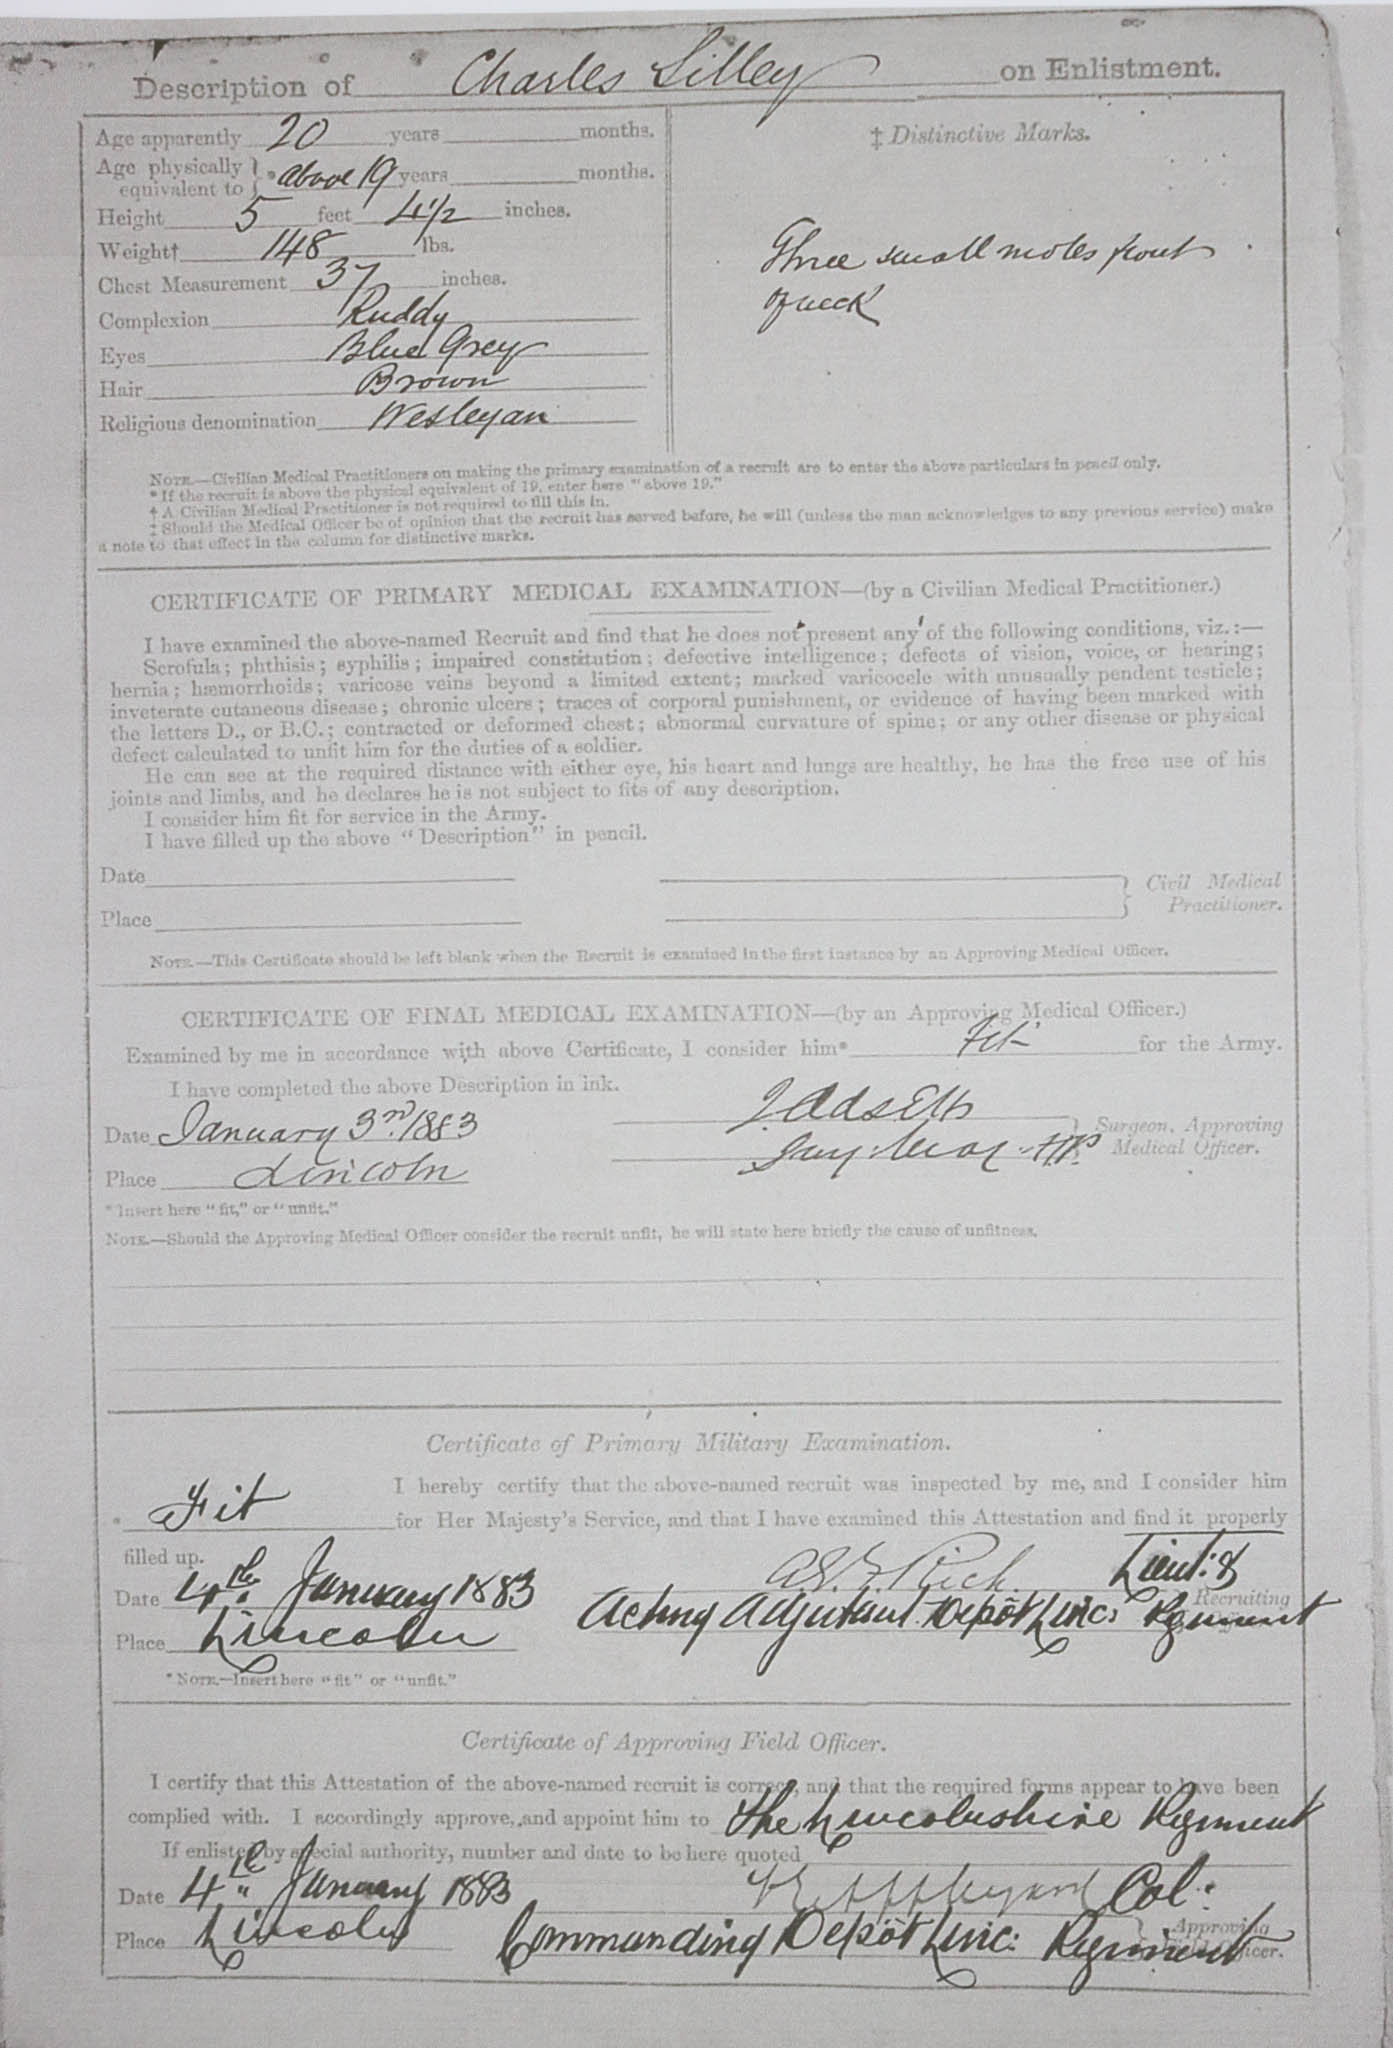 Description of Charles Lilley on Enlistment.
Age apparently 20 years months.
Age physically equivalent to } * above 19 years months.
Height 5 feet 4½ inches.
Weight† 148 lbs.
Chest Measurement 37 inches.
Complexion Ruddy
Eyes Blue Grey
Hair Brown
Religious denomination Wesleyan
‡ Distinctive Marks.
Three small moles front
of neck
NOTE.—Civilian Medical Practitioners on making the primary examination of a recruit are to enter the above particulars in pencil only.
* If the recruit is above the physical equivalent of 19, enter here "above 19."
† A Civilian Medical Practitioner is not required to fill this in.
‡ Should the Medical Officer be of opinion that the recruit has served before, he will (unless the man acknowledges to any previous service) make
a note to that effect in the column for distinctive marks.
CERTIFICATE OF PRIMARY MEDICAL EXAMINATION—(by a Civilian Medical Practitioner.)
I have examined the above-named Recruit and find that he does not present any of the following conditions, viz.:—
Scrofula; phthisis; syphilis; impaired constitution; defective intelligence; defects of vision, voice, or hearing;
hernia; hæmorrhoids; varicose veins beyond a limited extent; marked varicocele with unusually pendent testicle;
inveterate cutaneous disease; chronic ulcers; traces of corporal punishment, or evidence of having been marked with
the letters D., or B.C.; contracted or deformed chest; abnormal curvature of spine; or any other disease or physical
defect calculated to unfit him for the duties of a soldier.
He can see at the required distance with either eye, his heart and lungs are healthy, he has the free use of his
joints and limbs, and he declares he is not subject to fits of any description.
I consider him fit for service in the Army.
I have filled up the above "Description" in pencil.
Date
Place
} Civil Medical
Practitioner.
NOTE.—This Certificate should be left blank when the Recruit is examined in the first instance by an Approving Medical Officer.
CERTIFICATE OF FINAL MEDICAL EXAMINATION—(by an Approving Medical Officer.)
Examined by me in accordance with above Certificate, I consider him* Fit for the Army.
I have completed the above Description in ink.
Date January 3rd 1883
Place Lincoln
Surgeon, Approving
Medical Officer.
*Insert here "fit," or "unfit."
NOTE.—Should the Approving Medical Officer consider the recruit unfit, he will state here briefly the cause of unfitness.
Certificate of Primary Military Examination.
I hereby certify that the above-named recruit was inspected by me, and I consider him
* Fit for Her Majesty's Service, and that I have examined this Attestation and find it properly
filled up.
Date 4th January 1883 Rich Lieut: &
Acting Adjutant Depôt Linc: Regiment
Recruiting
Place Lincoln
*NOTE.—Insert here "fit" or "unfit."
Certificate of Approving Field Officer.
I certify that this Attestation of the above-named recruit is correct, and that the required forms appear to have been
complied with. I accordingly approve, and appoint him to The Lincolnshire Regiment
If enlisted by special authority, number and date to be here quoted
Date 4th January 1883 Col:
Place Lincoln Commanding Depôt Linc: Regiment
Approving
Field Officer.